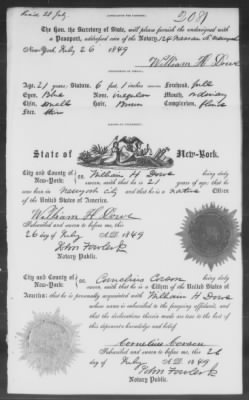 2081
The Hon. the Secretary of State, will please furnish the undersigned with
a Passport, addressed care of the Notary, 124 Nassau St.
New-York, July 26 1849
William H Dowe
Age, 21 years, Stature 6 feet, inches Forehead, full
Eyes, Blue Nose, Mouth,
Chin, small Hair, Brown Complexion,
Face,
State of New-York.
City and County of New-York: ss. William H Dowe being duly
sworn, doth say, that he is 21 years of age; that he
was born in New York City and that he is a native Citizen
of the United States of America.
William H Dowe
Subscribed and sworn to before me, this
26 day of July A.D. 1849
John Fowler Jr
Notary Public.
City and County of New-York: ss. Cornelius being duly
sworn, doth say, that he is a Citizen of the United States of
America; that he is personally acquainted with William H Dowe
whose name is subscribed to the foregoing affidavit, and
that the declarations therein made are true to the best of
this deponent's knowledge and belief.
Cornelius
Subscribed and sworn to before me, this 26
day of July A.D. 1849
John Fowler Jr
Notary Public.